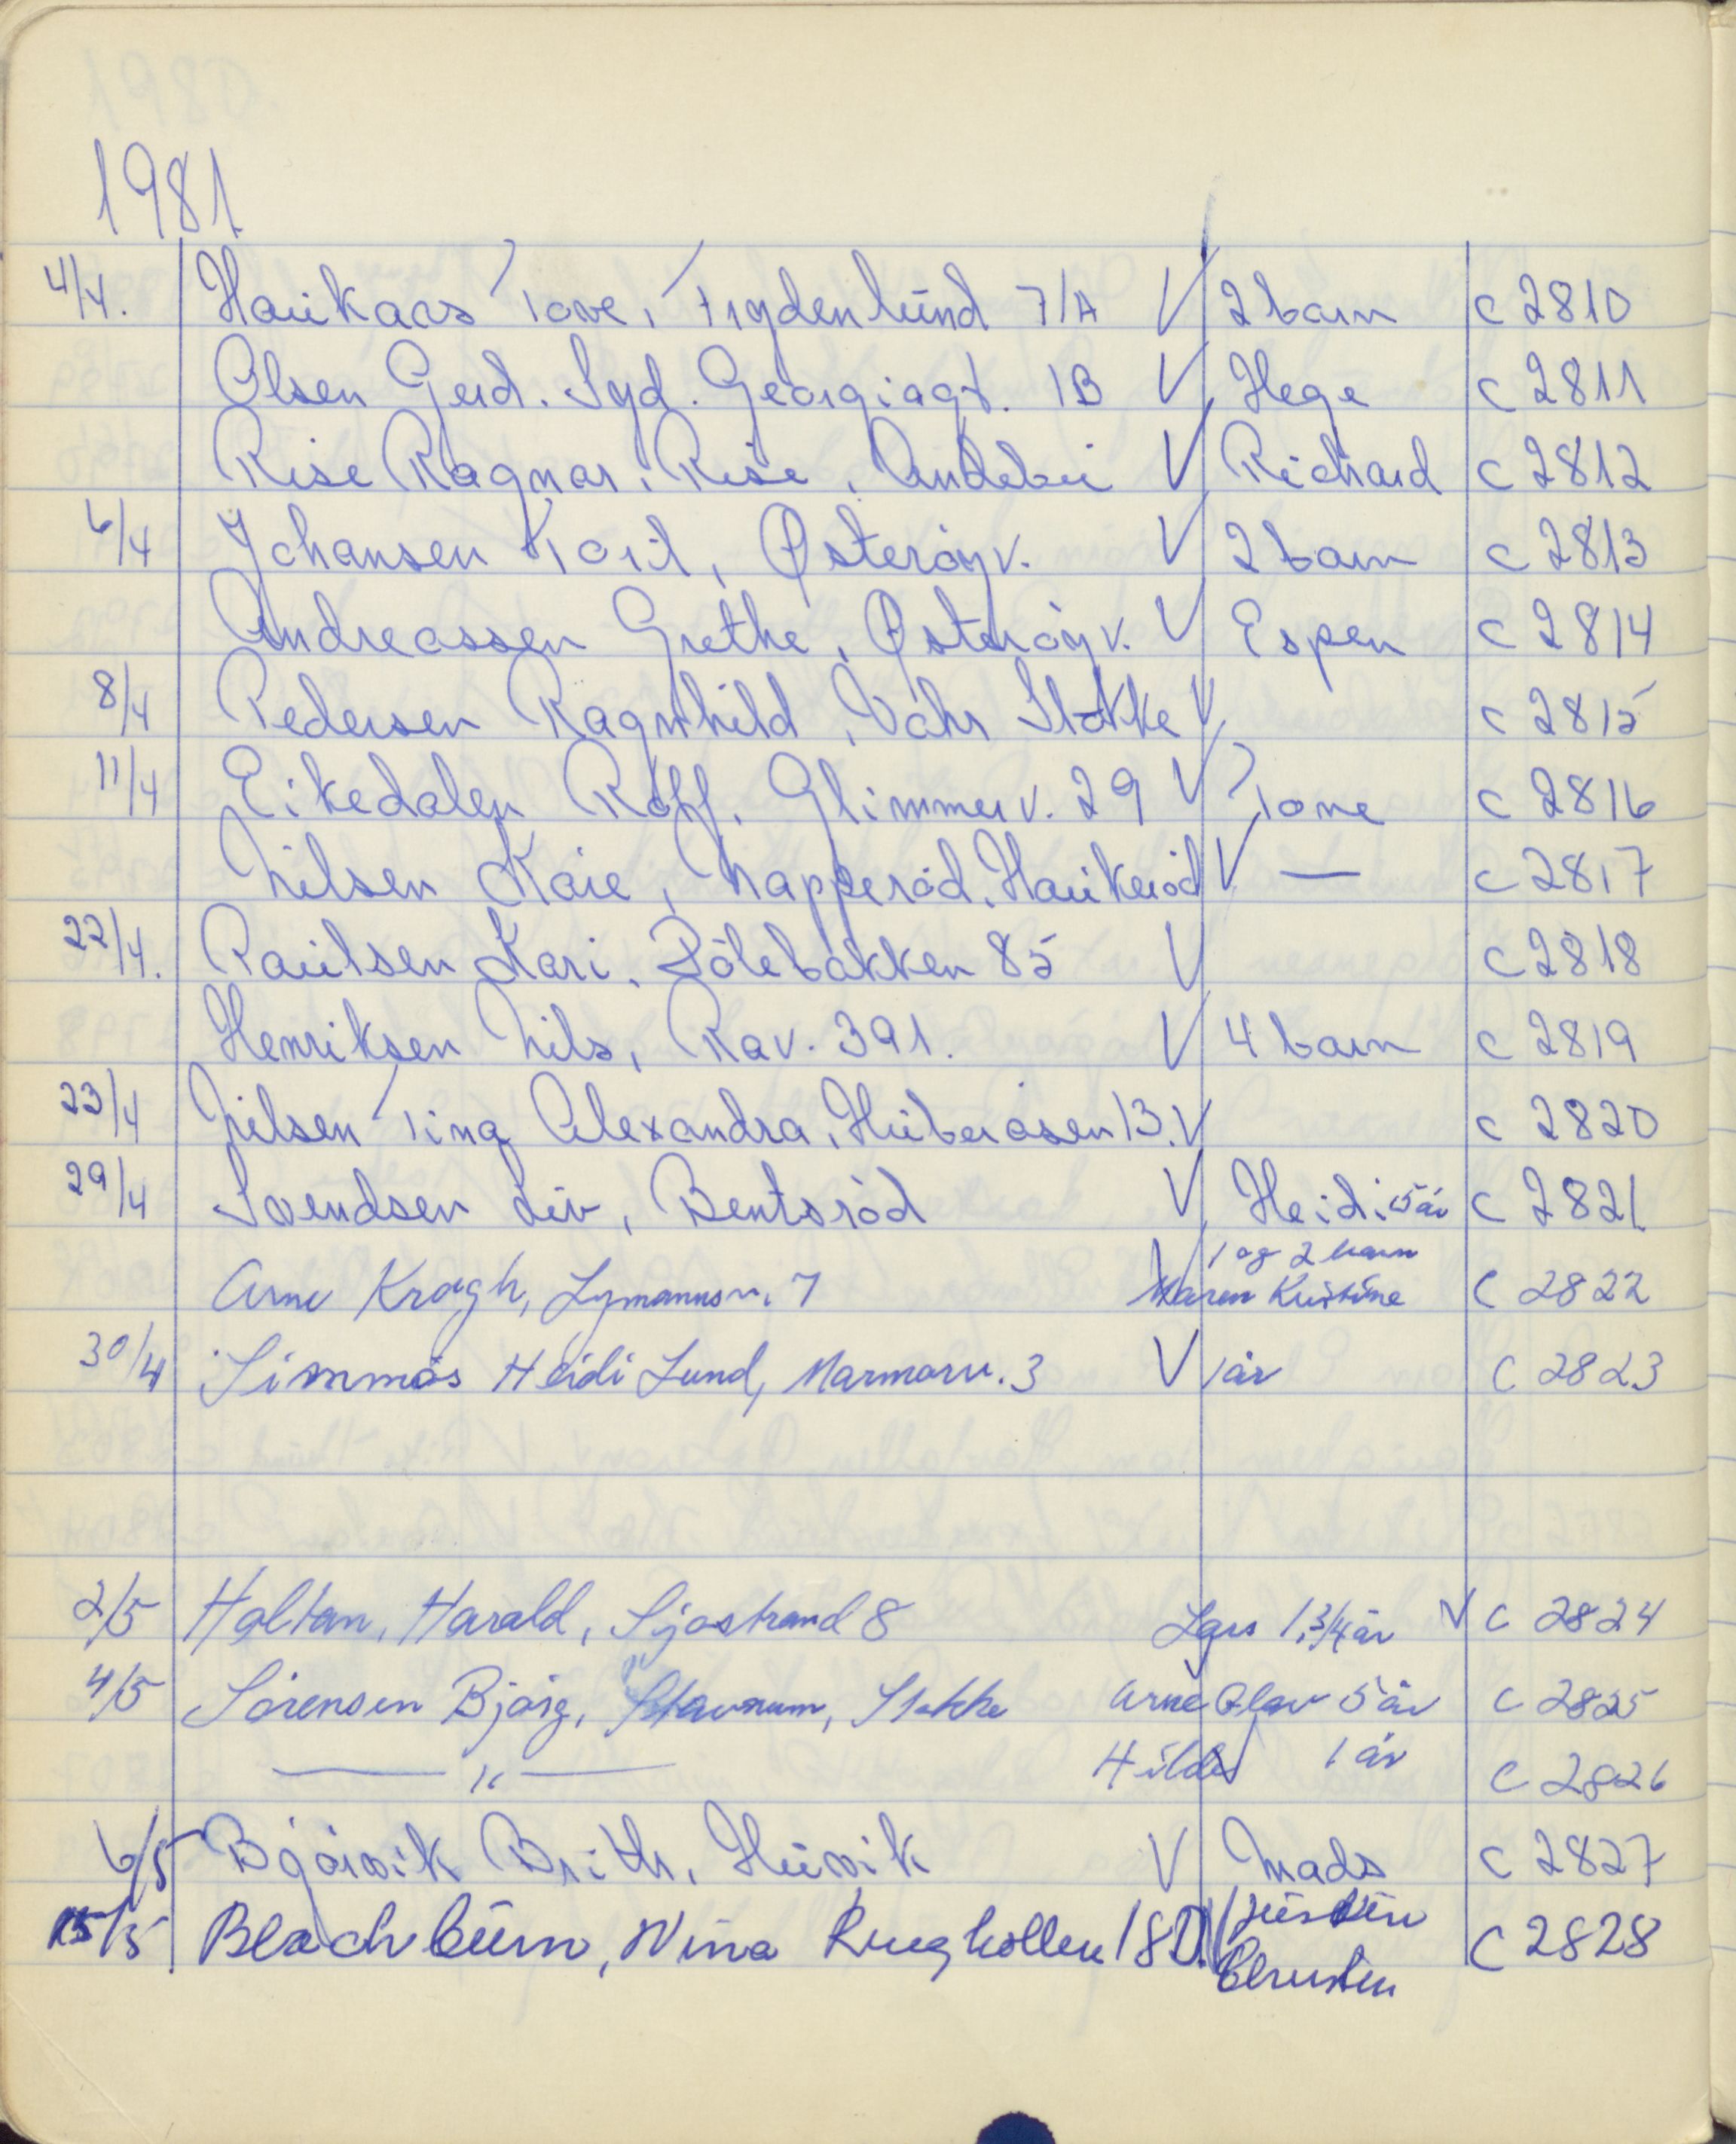 1981
4/4. Haukaas Tove, Frydenlund 7/A V 2 barn c 2810
Olsen Gerd. Syd. Georgiagt. 1B V Hege c 2811
Rise Ragnar, Rise, Andebu V Richard c 2812
6/4 Johansen Toril, Østerøyv. V 2 barn c 2813
Andreassen Grethe, Østerøyv. V Espen c 2814
8/4 Pedersen Ragnhild, Vahr Stokke V c 2815
11/4 Eikedalen Rolf, Glimmerv. 29 V Tone c 2816
Nilsen Kåre, Napperød, Haukerød V — c 2817
22/4. Paulsen Kari, Bølebakken 85 V c 2818
Henriksen Nils, Rav. 391. V 4 barn c 2819
23/4 Nilsen Tina Alexandra, Huberåsen 13. V c 2820
29/4 Svendsen Liv, Bentsrød V Heidi 5 år c 2821
1 og 2 barn
Arne Kragh, Lymannsv. 7 V Maren Kristine C 2822
30/4 Simmås Heidi Lund, Marmorv. 3 V 1 år C 2823
2/5 Holtan, Harald, Sjøstrand 8 Lars 1,3/4 år V C 2824
4/5 Sørensen Bjørg, Stavnum, Stokke Arne Olav 5 år C 2825
— " — Hilde V 1 år C 2826
6/5 Bjørvik Brith, Husvik V Mads c 2827
15/5 Blachburn, Nina Ringkollen 18D. V C 2828